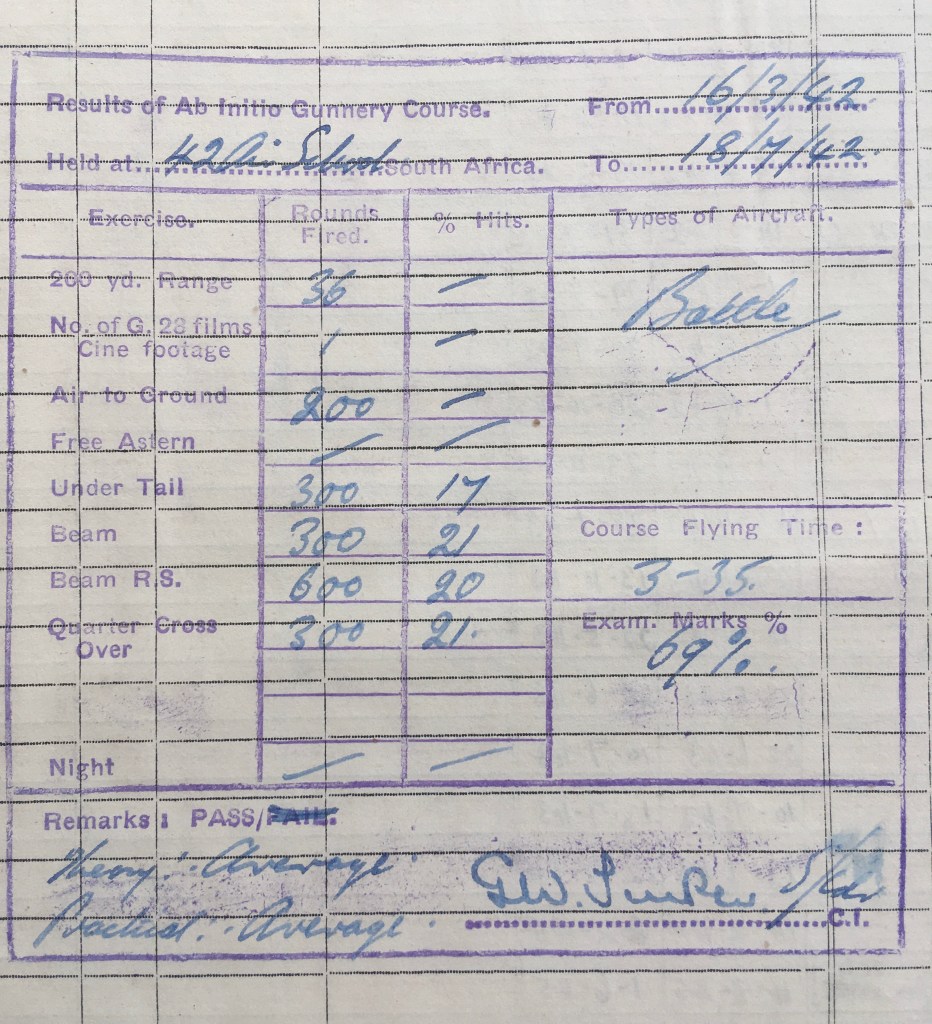 Results of Ab Initio Gunnery Course. From 16/3/42.
Held at 42 Air School South Africa. To 18/7/42.
Exercise. Rounds Fired. % Hits. Types of Aircraft.
200 yd. Range 36 —
Battle
No. of G. 28 films
Cine footage / —
Air to Ground 200 —
Free Astern — —
Under Tail 300 17
Beam 300 21
Course Flying Time :
3-35.
Beam R.S. 600 20
Quarter Cross Over 300 21.
Exam. Marks %
69%.
Night — —
Remarks : PASS/FAIL.
Theory: Average.
Practical: Average.
G.W. S/Ldr
C.I.